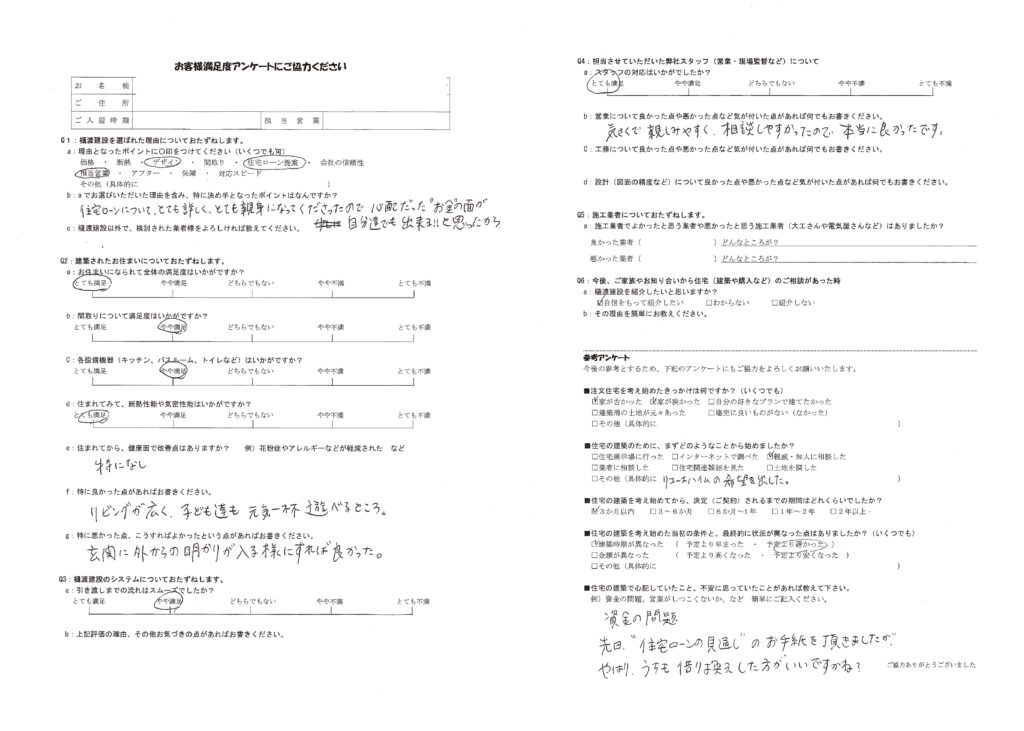 お客様満足度アンケートにご協力ください
お名前
ご住所
ご入居時期
担当営業
Q1：樋渡建設を選ばれた理由についておたずねします。
a：理由となったポイントに○印をつけてください（いくつでも可）
価格 ・ 断熱 ・ デザイン ・ 間取り ・ 住宅ローン提案 ・ 会社の信頼性
担当営業 ・ アフター ・ 保障 ・ 対応スピード
その他（具体的に ）
b：aでお選びいただいた理由を含み、特に決め手となったポイントはなんですか？
住宅ローンについて、とても詳しく、とても親身になってくださったので 心配だった"お金"の面が
自分達でも出来る!!と思ったから
c：樋渡建設以外で、検討された業者様をよろしければ教えてください。
Q2：建築されたお住まいについておたずねします。
a：お住まいになられて全体の満足度はいかがですか？
とても満足 やや満足 どちらでもない やや不満 とても不満
b：間取りについて満足度はいかがですか？
とても満足 やや満足 どちらでもない やや不満 とても不満
C：各設備機器（キッチン、バスルーム、トイレなど）はいかがですか？
とても満足 やや満足 どちらでもない やや不満 とても不満
d：住まれてみて、断熱性能や気密性能はいかがですか？
とても満足 やや満足 どちらでもない やや不満 とても不満
e：住まれてから、健康面で改善点はありますか？ 例）花粉症やアレルギーなどが軽減された など
特になし
f：特に良かった点があればお書きください。
リビングが広く、子ども達も 元気一杯 遊べるところ。
g：特に悪かった点、こうすればよかったという点があればお書きください。
玄関に外からの明かりが入る様にすれば良かった。
Q3：樋渡建設のシステムについておたずねします。
a：引き渡しまでの流れはスムーズでしたか？
とても満足 やや満足 どちらでもない やや不満 とても不満
b：上記評価の理由、その他お気づきの点があればお書きください。
Q4：担当させていただいた弊社スタッフ（営業・現場監督など）について
a：スタッフの対応はいかがでしたか？
とても満足 やや満足 どちらでもない やや不満 とても不満
b：営業について良かった点や悪かった点など気が付いた点があれば何でもお書きください。
気さくで 親しみやすく、相談しやすかったので、本当に良かったです。
C：工務について良かった点や悪かった点など気が付いた点があれば何でもお書きください。
d：設計（図面の精度など）について良かった点や悪かった点など気が付いた点があれば何でもお書きください。
Q5：施工業者についておたずねします。
a：施工業者でよかったと思う業者や悪かったと思う施工業者（大工さんや電気屋さんなど）はありましたか？
良かった業者（ ）どんなところが？
悪かった業者（ ）どんなところが？
Q6：今後、ご家族やお知り合いから住宅（建築や購入など）のご相談があった時
a：樋渡建設を紹介したいと思いますか？
☑自信をもって紹介したい □わからない □紹介しない
b：その理由を簡単にお教えください。
参考アンケート
今後の参考とするため、下記のアンケートにもご協力をよろしくお願いいたします。
■注文住宅を考え始めたきっかけは何ですか？（いくつでも）
☑家が古かった ☑家が狭かった □自分の好きなプランで建てたかった
□建築用の土地が元々あった □建売に良いものがない（なかった）
□その他（具体的に ）
■住宅の建築のために、まずどのようなことから始めましたか？
□住宅展示場に行った □インターネットで調べた ☑親戚・知人に相談した
□業者に相談した □住宅関連雑誌を見た □土地を探した
□その他（具体的に リコーホハイムの希望を出した。 ）
■住宅の建築を考え始めてから、決定（ご契約）されるまでの期間はどれくらいでしたか？
☑3か月以内 □3～6か月 □6か月～1年 □1年～2年 □2年以上
■住宅の建築を考え始めた当初の条件と、最終的に状況が異なった点はありましたか？（いくつでも）
☑建築時期が異なった （ 予定より早まった ・ 予定より遅かった ）
□金額が異なった （ 予定より高くなった ・ 予定より安くなった ）
□その他（具体的に ）
■住宅の建築で心配していたこと、不安に思っていたことがあれば教えて下さい。
例）資金の問題、営業がしつこくないか、など 簡単にご記入ください。
資金の問題
先日、"住宅ローンの見直し"のお手紙を頂きましたが、
やはり、うちも 借り換えした方がいいですかね？
ご協力ありがとうございました